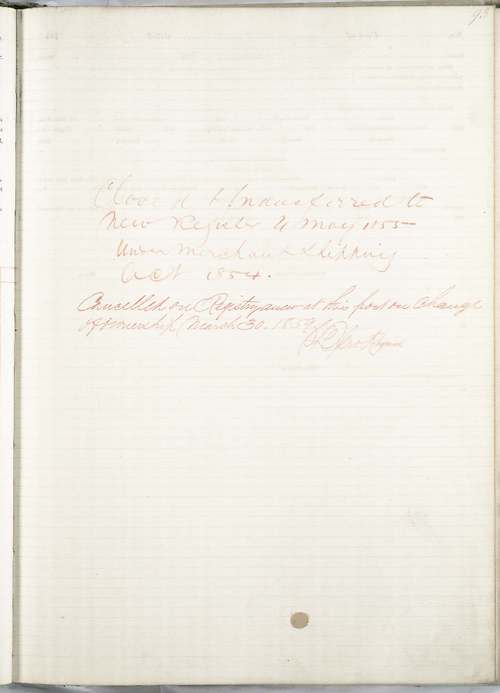 93
Closed & transferred to
New Register 4 May 1855
Under Merchant Shipping
Act 1854.
Cancelled on Registry anew at this port on change
of ownership March 30. 1859